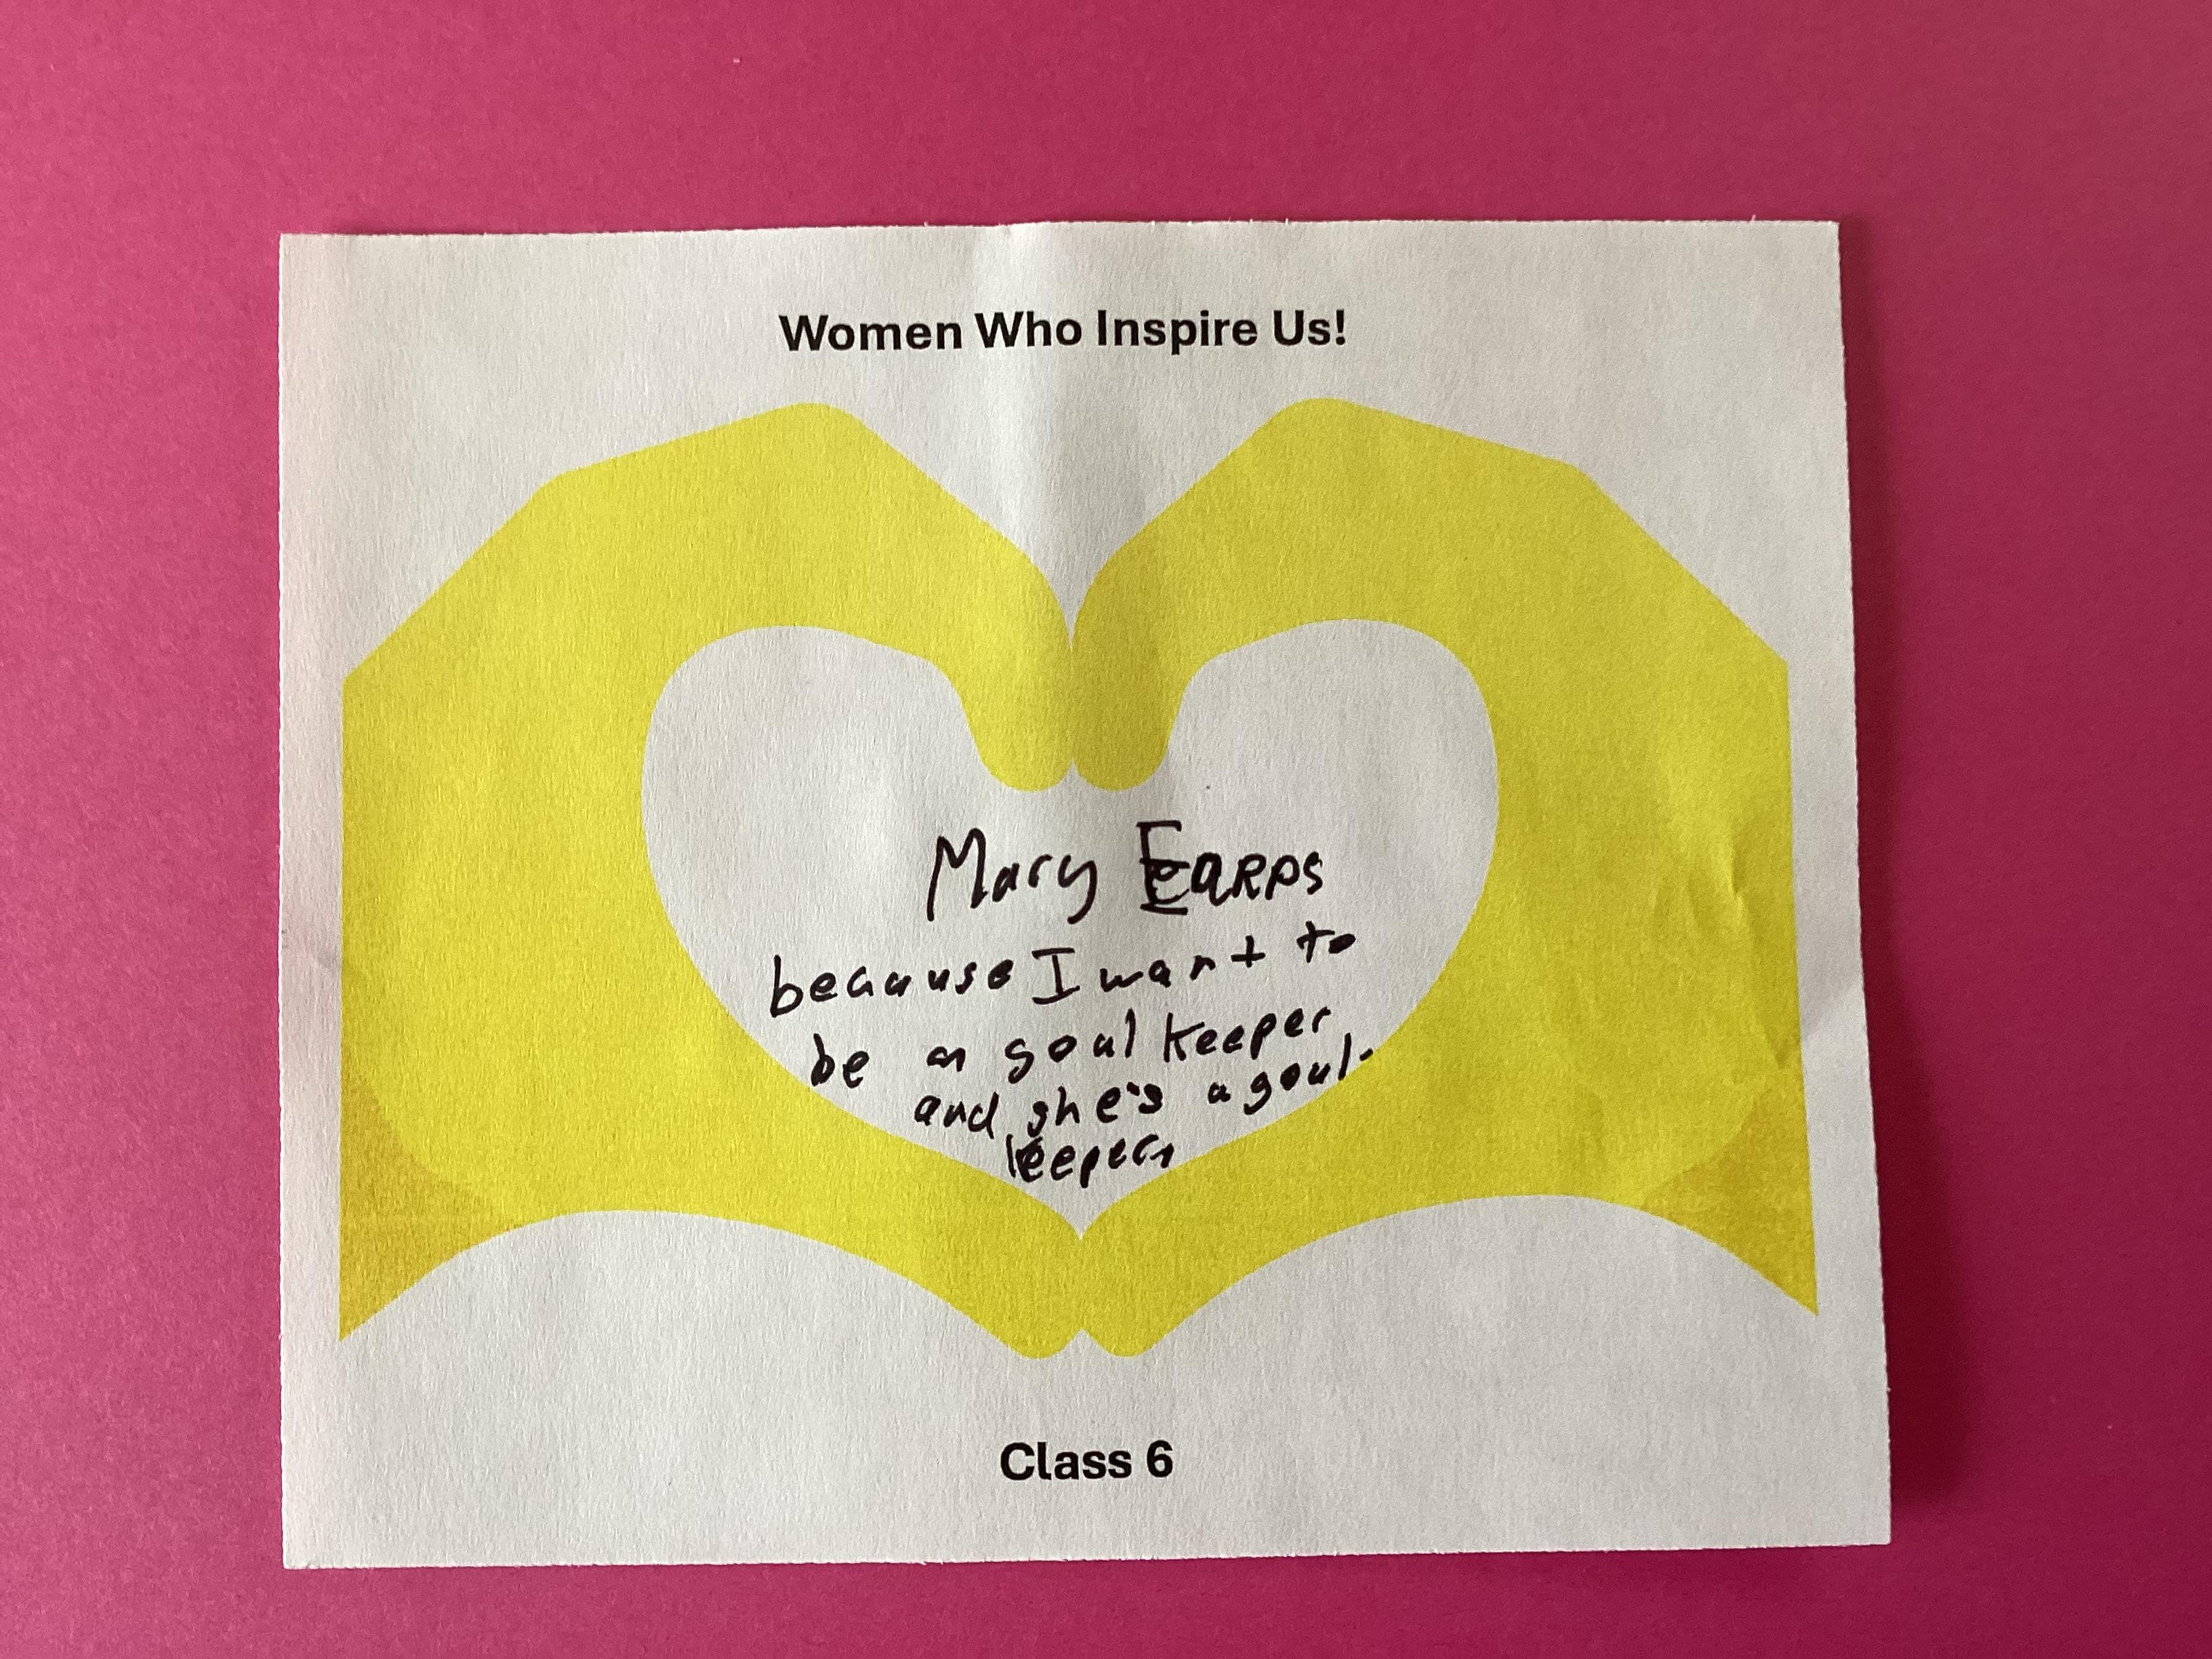 Women Who Inspire Us!
Mary Earps
because I want to
be a goal keeper
and she's a goal
keeper
Class 6